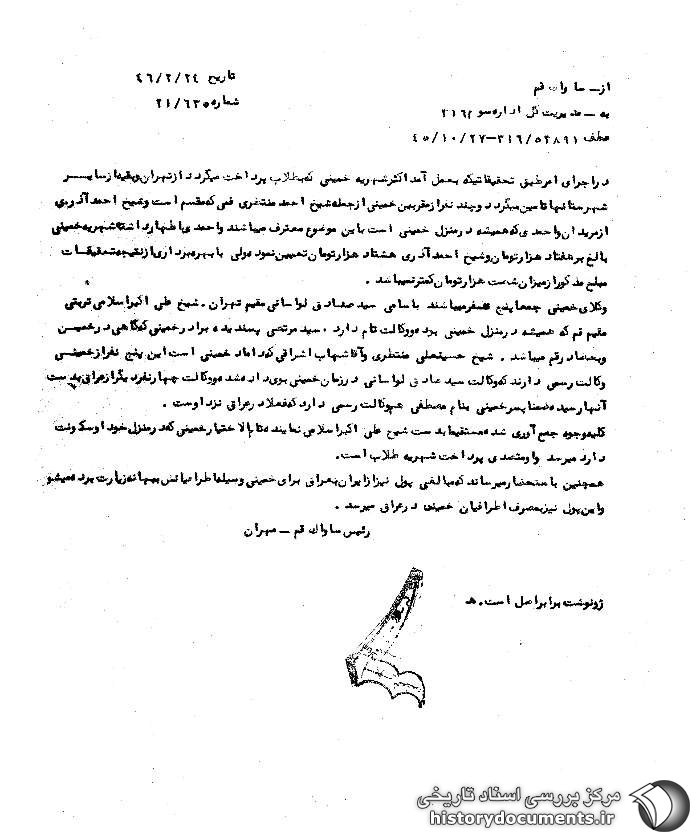 از ــ ساواك قم
تاریخ ۴۶/۲/۲۴
به ــ مدیریت کل اداره سوم ۳۱۶
شماره ۲۱/۶۳۵
عطف ۳۱۶/۵۲۸۹۱ــ۴۵/۱۰/۲۷
در اجرای امر طبق تحقیقاتیکه بعمل آمد اکثر شهریه خمینی که بطلاب پرداخت میگردد از تهران و بقیه از سایر
شهرستانها تامین میگردد و چند نفر از مقربین خمینی از جمله شیخ احمد منتظری قمی که مقسم است و شیخ احمد آذری
از مریدان واحدی که همیشه در منزل خمینی است باین موضوع معترف میباشند واحدی اظهار داشته شهریه خمینی
بالغ بر هفتاد هزار تومان و شیخ احمد آذری هشتاد هزار تومان تعیین نموده ولی با بهره برداری از نتیجه تحقیقات
مبلغ مذکور از میزان شصت هزار تومان کمتر نمیباشد .
وکلای خمینی جمعا پنج نفر میباشند باسامی سید صادق لواسانی مقیم تهران . شیخ علی اکبر اسلامی تربتی
مقیم قم که همیشه در منزل خمینی بوده و وکالت تام دارد . سید مرتضی پسندیده برادر خمینی که گاهی در خمین
و بعضا در قم میباشد . شیخ حسینعلی منتظری و آقا شهاب اشراقی که داماد خمینی است این پنج نفر از خمینی
وکالت رسمی دارند که وکالت سید صادق لواسانی در زمان خمینی بوی داده شده و وکالت چهار نفر دیگر از عراق بدست
آنها رسیده ضمنا پسر خمینی بنام مصطفی هم وکالت رسمی دارد که فعلا در عراق نزد اوست .
کلیه وجوه جمع آوری شده مستقیما بدست شیخ علی اکبر اسلامی نماینده تام الاختیار خمینی که در منزل خود او سکونت
دارد میرسد و او متصدی پرداخت شهریه طلاب است .
همچنین باستحضار میرساند که مبالغی پول نیز از ایران بعراق برای خمینی وسیله اطرافیانش ببهانه زیارت برده میشود
و این پول نیز بمصرف اطرافیان خمینی در عراق میرسد .
رئیس ساواك قم ــ مهران
رونوشت برابر اصل است. هـ
مرکز بررسی اسناد تاریخی
historydocuments.ir